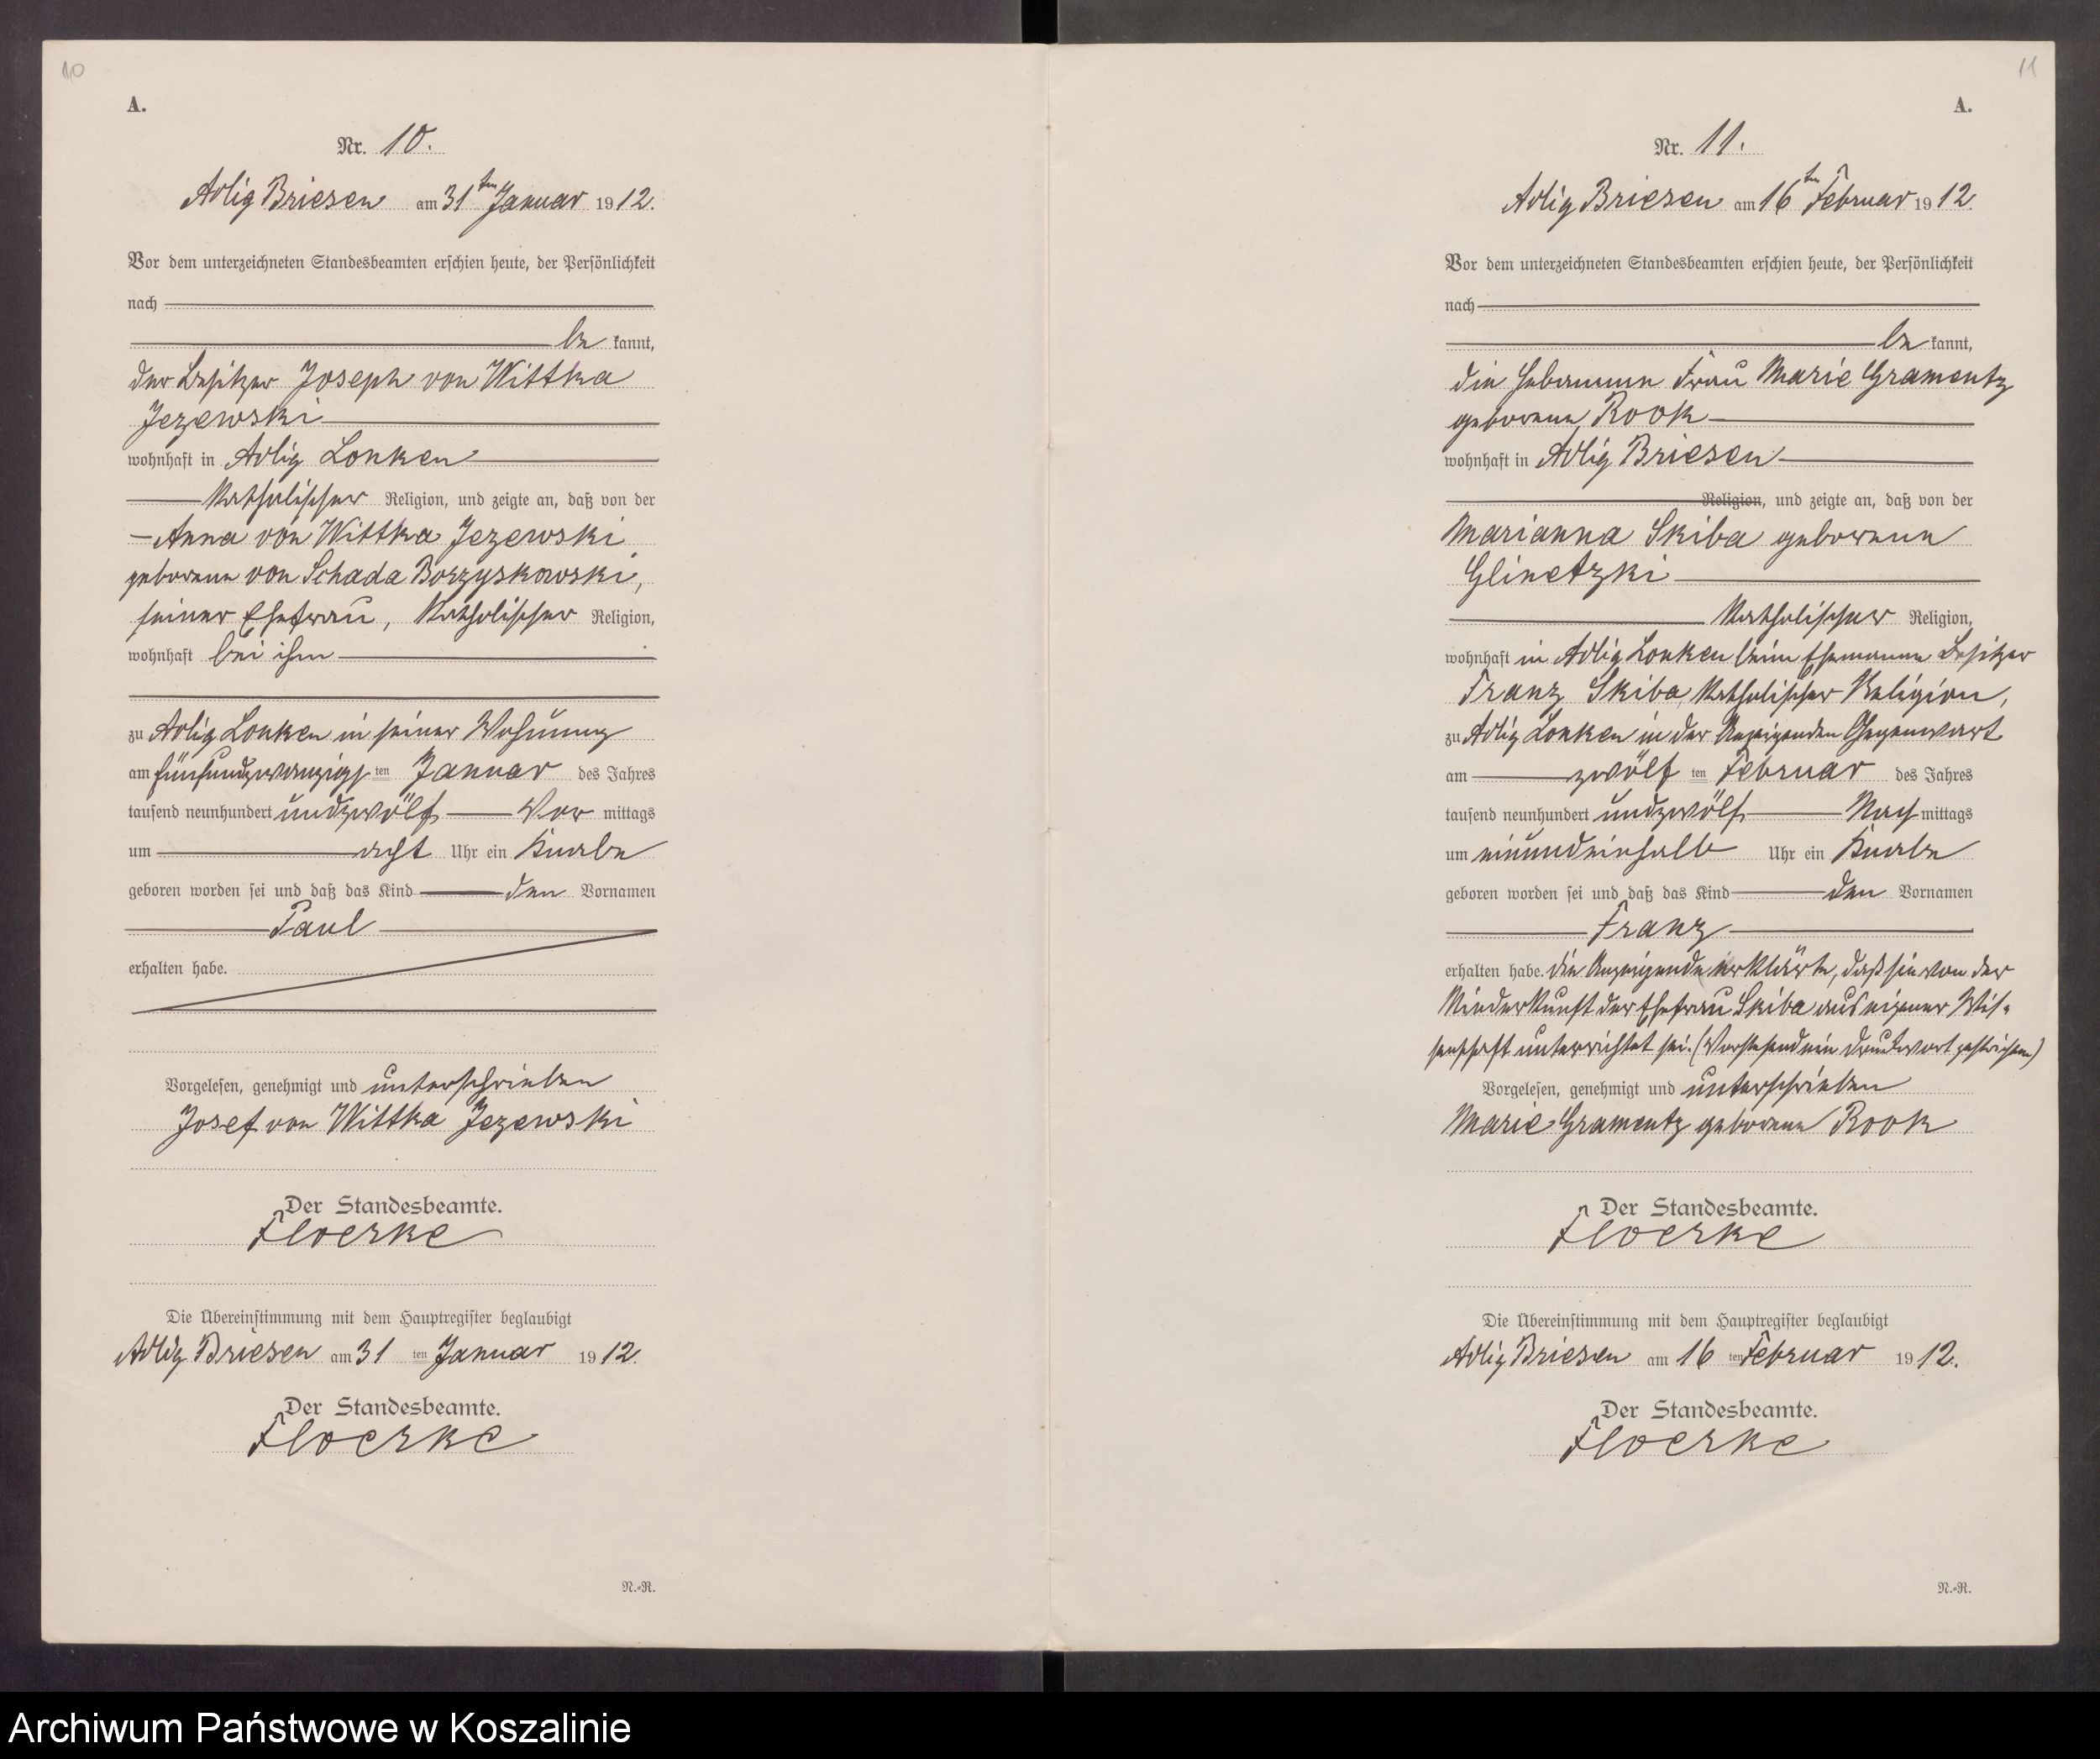 10
A.
Nr. 10.
Adlig Briesen am 31ten Januar 1912.
Vor dem unterzeichneten Standesbeamten erschien heute, der Persönlichkeit
nach
be kannt,
der Besitzer Joseph von Wittka
Jezewski
wohnhaft in Adlig Lonken
katholischer Religion, und zeigte an, daß von der
Anna von Wittka Jezewski
geborene von Schada Borzyskowski,
seiner Ehefrau, katholischer Religion,
wohnhaft bei ihm
zu Adlig Lonken in seiner Wohnung
am fünfundzwanzigs ten Januar des Jahres
tausend neunhundert undzwölf Vor mittags
um acht Uhr ein Knabe
geboren worden sei und daß das Kind den Vornamen
Paul
erhalten habe.
Vorgelesen, genehmigt und unterschrieben
Josef von Wittka Jezewski
Der Standesbeamte.
Floerke
Die Übereinstimmung mit dem Hauptregister beglaubigt
Adlig Briesen am 31 ten Januar 1912.
Der Standesbeamte.
Floerke
N.-R.
11
A.
Nr. 11.
Adlig Briesen am 16ten Februar 1912.
Vor dem unterzeichneten Standesbeamten erschien heute, der Persönlichkeit
nach
be kannt,
die Hebamme Frau Marie Gramentz
geborene Rook
wohnhaft in Adlig Briesen
Religion, und zeigte an, daß von der
Marianna Skiba geborene
Glinetzki
katholischer Religion,
wohnhaft in Adlig Lonken beim Ehemanne Besitzer
Franz Skiba, katholischer Religion,
zu Adlig Lonken in der Anzeigenden Gegenwart
am zwölf ten Februar des Jahres
tausend neunhundert undzwölf Nach mittags
um einundeinhalb Uhr ein Knabe
geboren worden sei und daß das Kind den Vornamen
Franz
erhalten habe. Die Anzeigende erklärte, daß sie von der
Niederkunft der Ehefrau Skiba aus eigener Wis-
senschaft unterrichtet sei. (Vorstehend ein Druckwort gestrichen)
Vorgelesen, genehmigt und unterschrieben
Marie Gramentz geborene Rook
Der Standesbeamte.
Floerke
Die Übereinstimmung mit dem Hauptregister beglaubigt
Adlig Briesen am 16 ten Februar 1912.
Der Standesbeamte.
Floerke
N.-R.
Archiwum Państwowe w Koszalinie